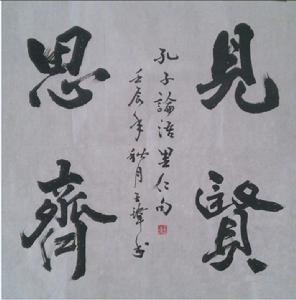 見賢
孔子論語里仁句
壬辰年秋月王瑋書
思齊